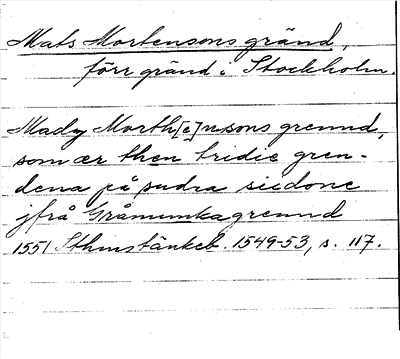 Mats Mortensons gränd,
förr gränd i Stockholm.
Mady Morth[e]nsons grennd,
som ær then tridie gren-
dena på sudra siidone
ifrå Gråmunkagrennd
1551 Sthmstänkeb. 1549-53, s. 117.